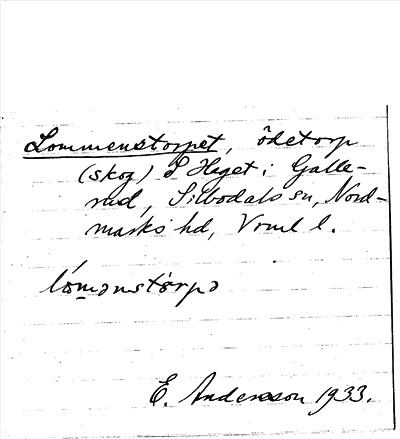 Lommenstorpet, ödetorp
(skog) å Höget i Galle-
rud, Silbodals sn, Nord-
marks hd, Vrml l.
lómənstòrpə
E. Andersson 1933.